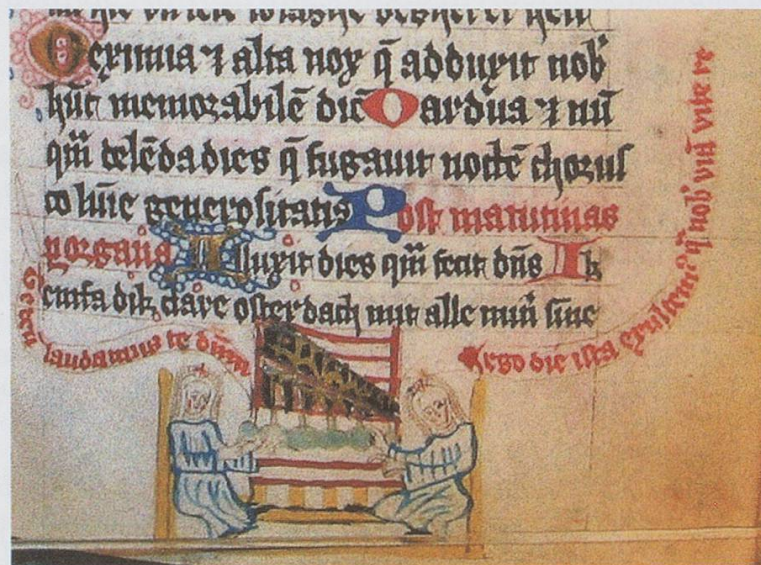 O eximia ⁊ alta nox q̄ adduxit nob'
hūc memorabilē diē O ardua ⁊
colēda dies q̄ fugauit noctē chorus
generositatis Post matutinas
organis Illuxit dies quā fecit dn̄s Ik
entfa dik clare osterdach mit alle sine
laudamus te dn̄m
ergo die ista exultem⁹ q̄ nob' viā vite re